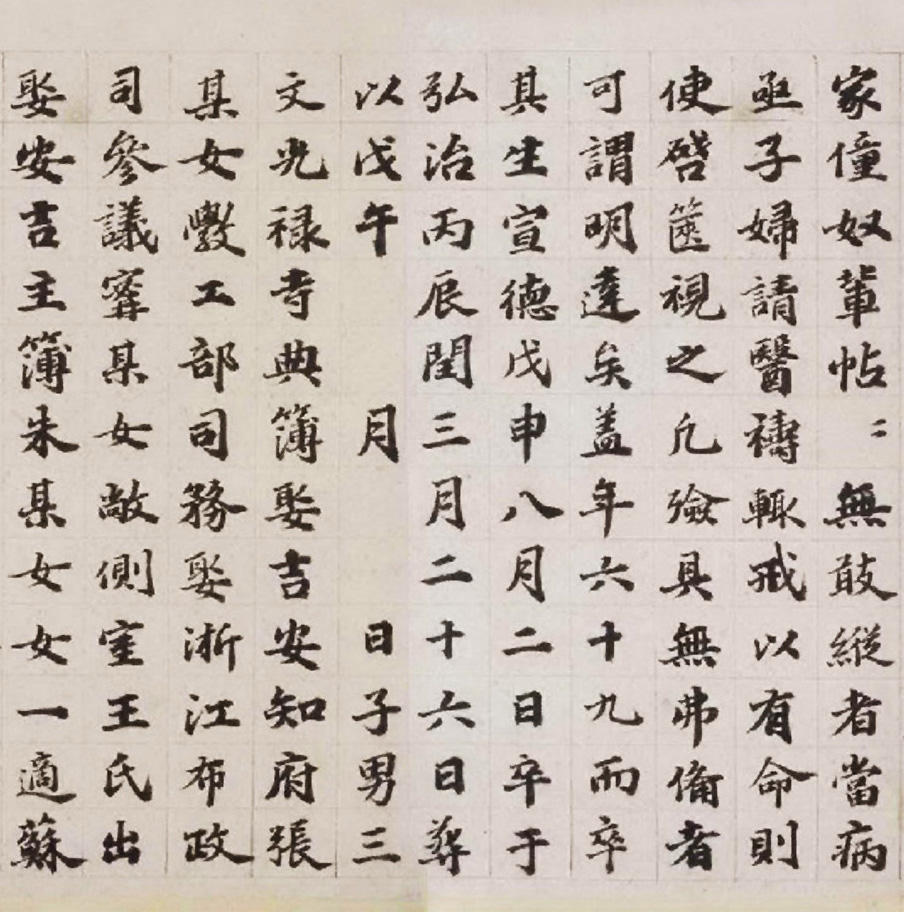 家僮奴軰帖〻無敢縱者當病
亟子婦請醫禱輒戒以有命則
使啓篋視之凡殮具無弗備者
可謂明達矣盖年六十九而卒
其生宣德戊申八月二日卒于
弘治丙辰閏三月二十六日葬
以戊午　　月　　日子男三
文光禄寺典簿娶吉安知府張
某女斆工部司務娶浙江布政
司參議寗某女敞側室王氏出
娶安吉主簿朱某女女一適蘇